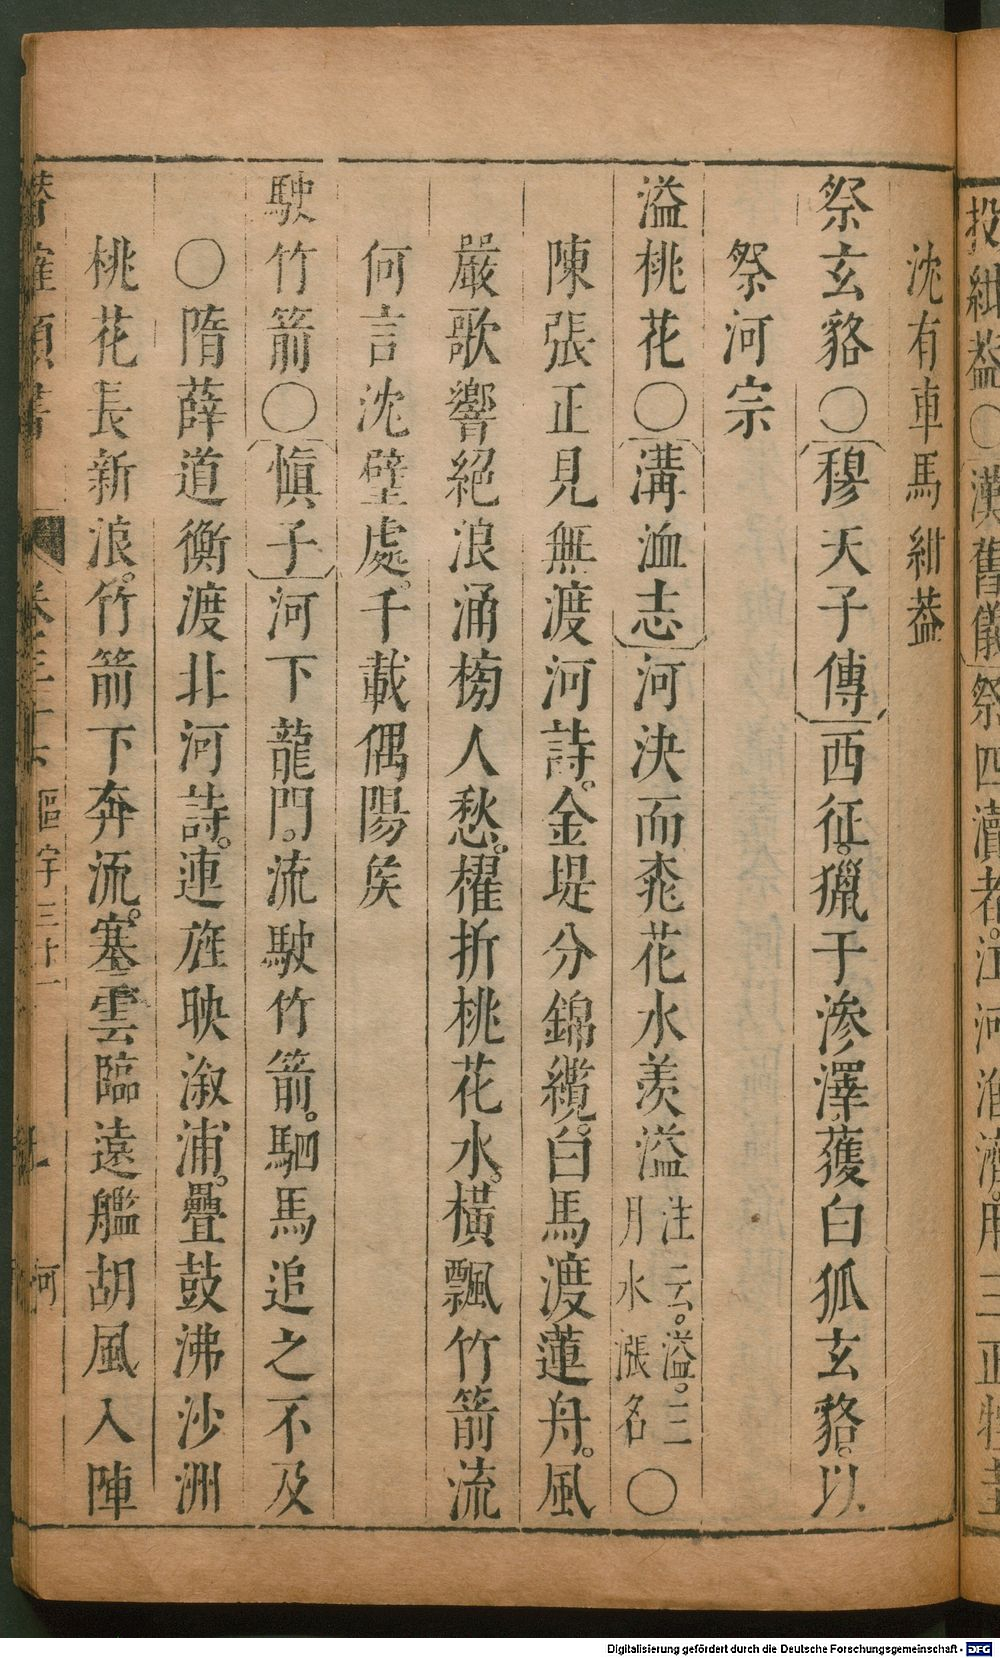 投紺葢○漢舊儀祭四瀆者。江河淮濟。用三正牲圭
沈有車馬紺葢
祭玄貉○穆天子傳西征。獵于滲澤。獲白狐玄貉。以
祭河宗
溢桃花○溝洫志河決而桃花水羨溢注云。溢。三月水漲名○
陳張正見無渡河詩。金堤分錦纜。白馬渡蓮舟。風
嚴歌響絕浪涌榜人愁。櫂折桃花水。橫飄竹箭流
何言沈璧處。千載偶陽矦
駛竹箭○愼子河下龍門。流駛竹箭。駟馬追之不及
○隋薛道衡渡北河詩。連旌映溆浦。疊鼓沸沙洲
桃花長新浪。竹箭下奔流。塞雲臨遠艦胡風入陣
潛確類書 卷三十 區宇三十一 河